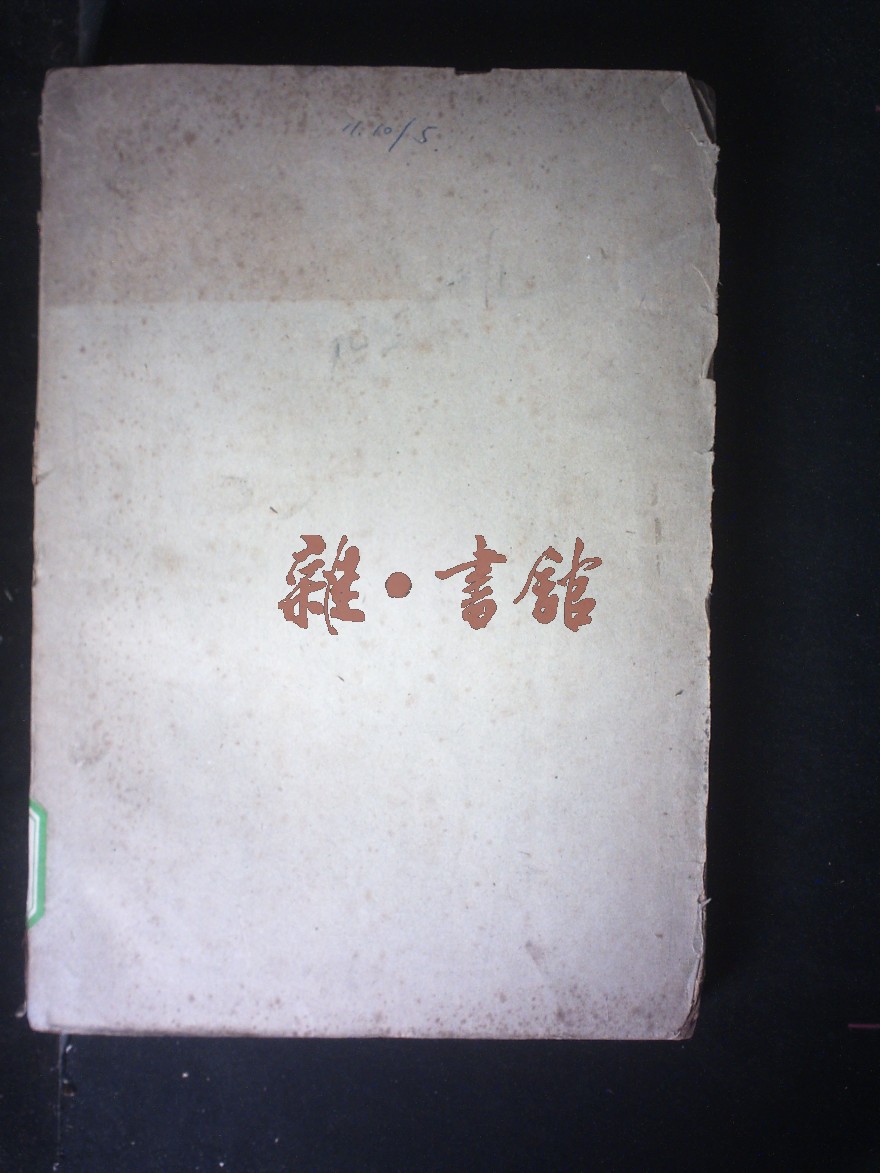 11.10/5
雜·書館